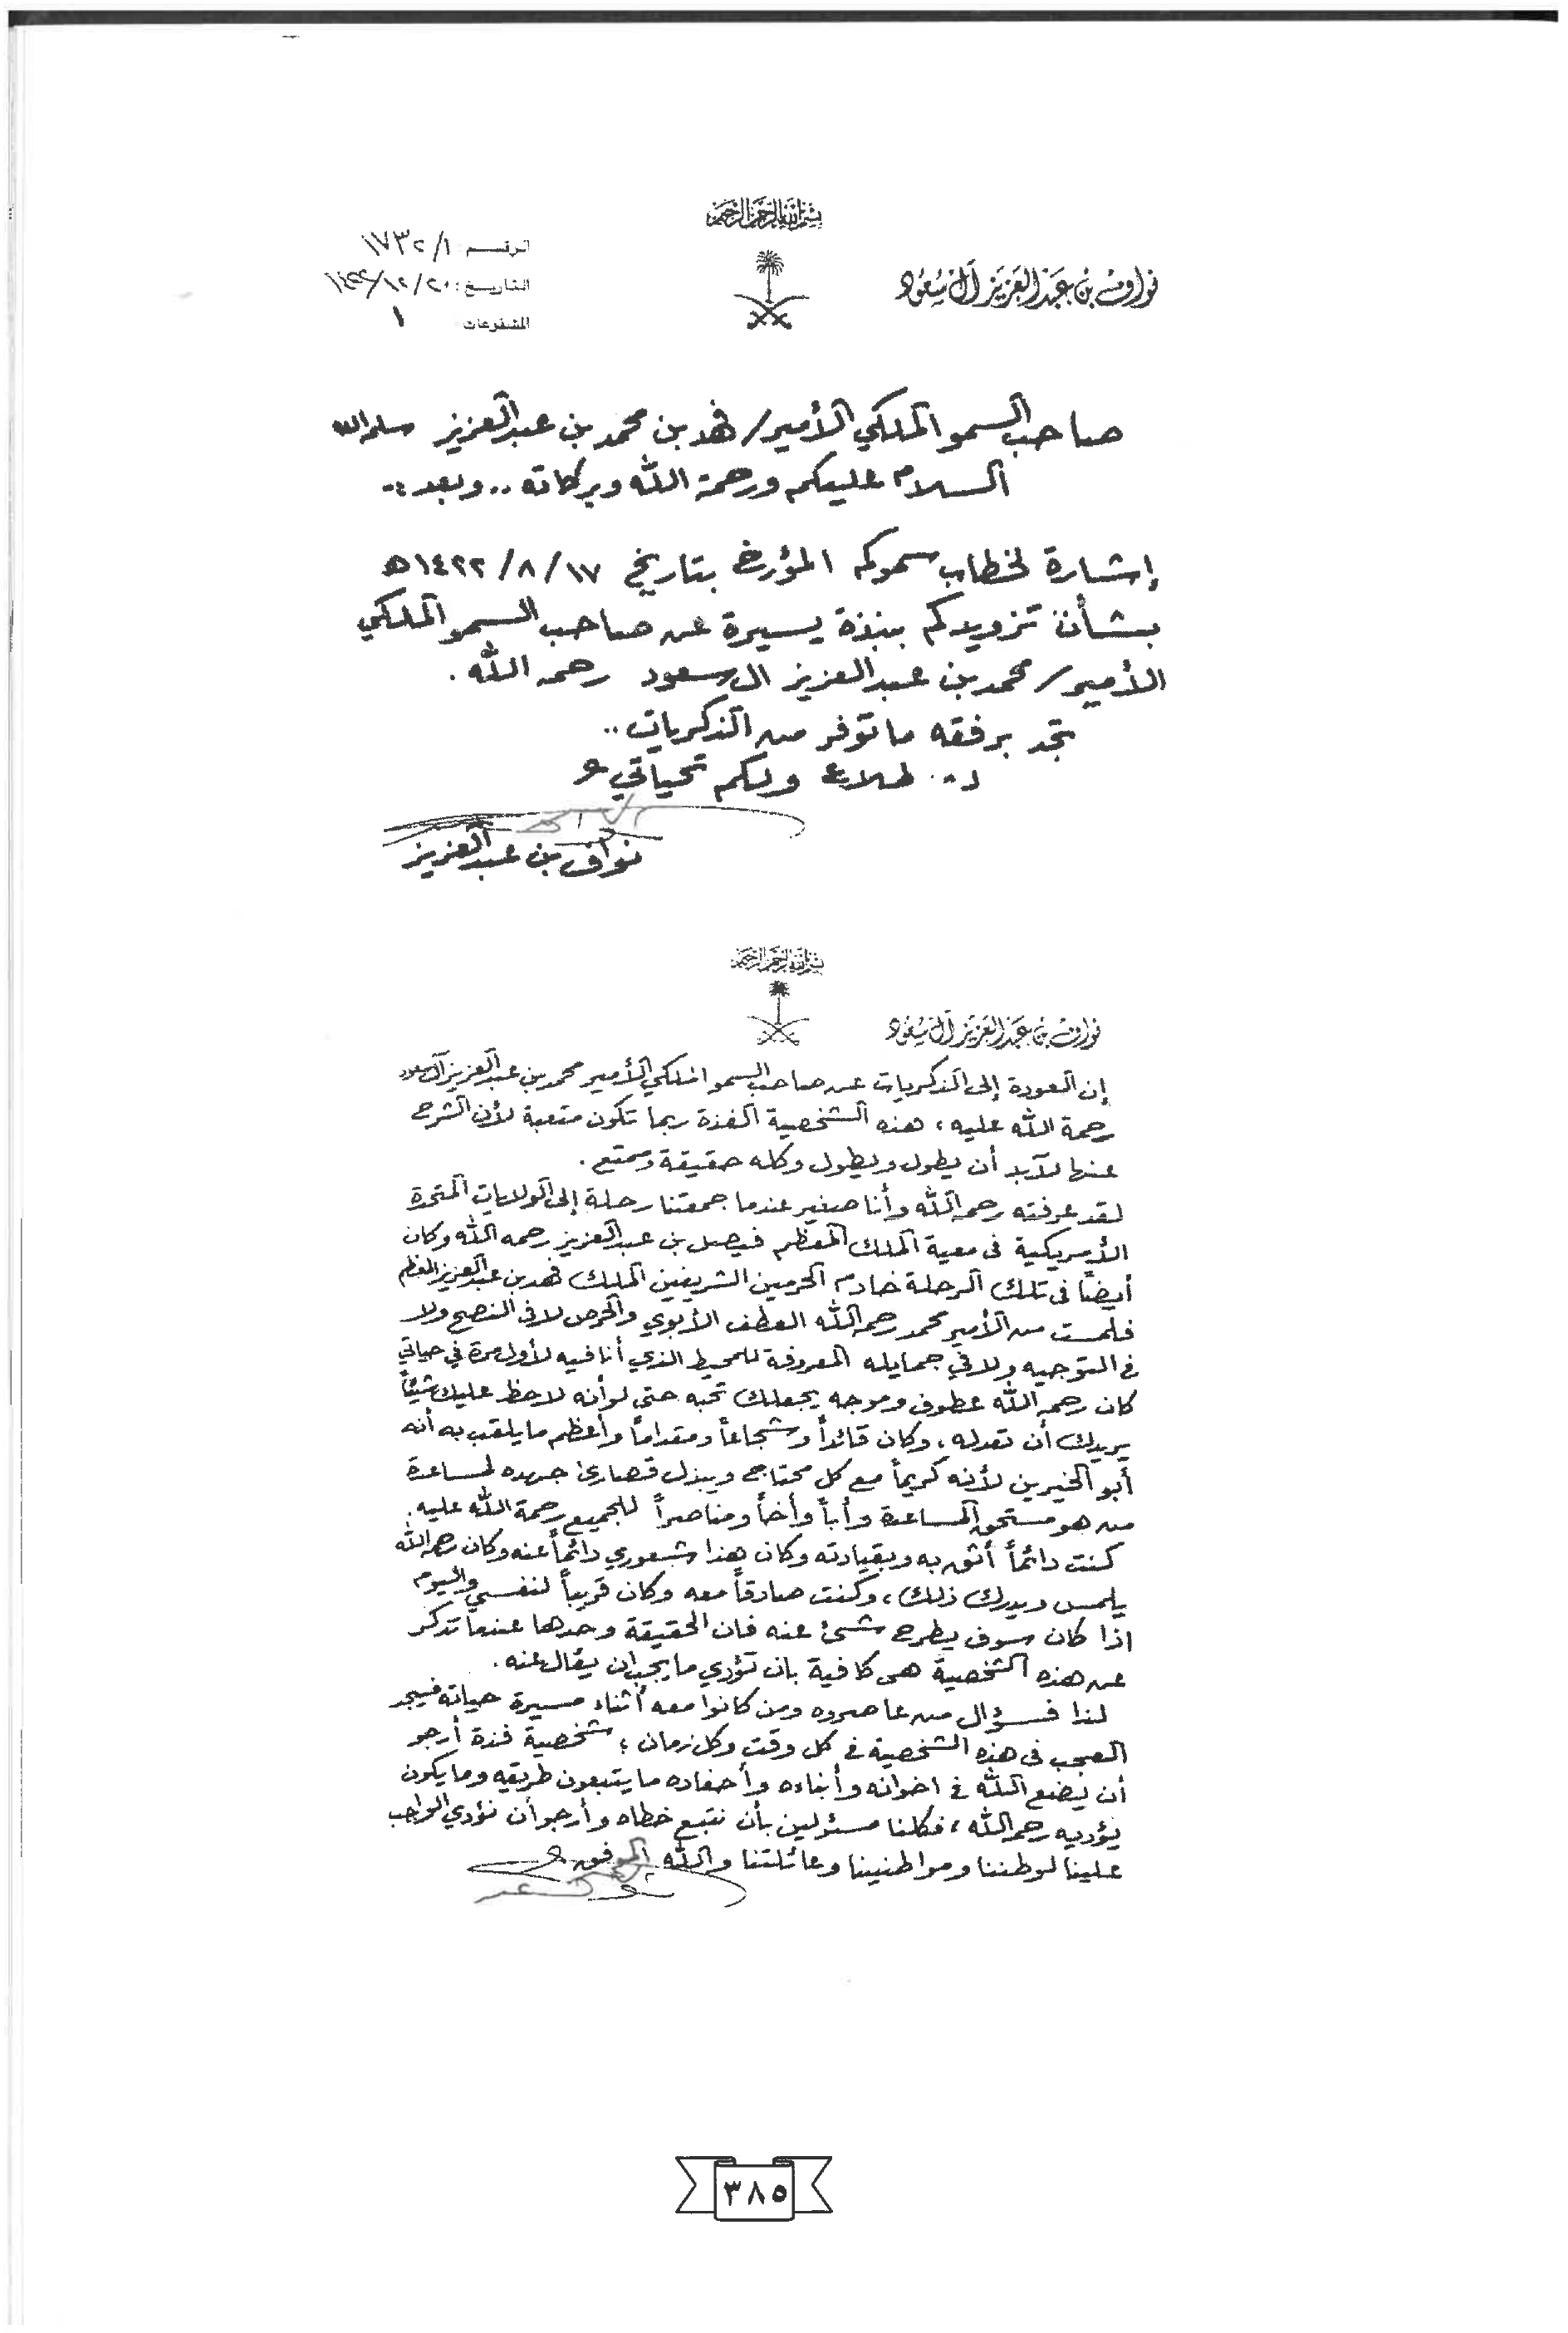 بسم الله الرحمن الرحيم
نواف بن عبد العزيز آل سعود
الرقم: ١٧٣٢/١
التاريخ: ١٤٢٢/١٢/٢٠
المشفوعات: ١
صاحب السمو الملكي الأمير/ فهد بن محمد بن عبدالعزيز سلمه الله
السلام عليكم ورحمة الله وبركاته .. وبعد :-
إشارة لخطاب سموكم المؤرخ بتاريخ ١٤٢٢/٨/١٧هـ
بشأن تزويدكم بنبذة يسيرة عن صاحب السمو الملكي
الأمير/ محمد بن عبدالعزيز ال سعود رحمه الله .
تجد برفقه ماتوفر من الذكريات ..
ولكم تحياتي
نواف بن عبدالعزيز
بسم الله الرحمن الرحيم
نواف بن عبد العزيز آل سعود
إن العودة إلى الذكريات عن صاحب السمو الملكي الأمير محمد بن عبدالعزيز آل سعود
رحمة الله عليه ، هذه الشخصية الفذة ربما تكون متعبة لأن الشرح
عنها لابد أن يطول ويطول وكله حقيقة وممتع .
لقد عرفته رحمه الله وأنا صغير عندما جمعتنا رحلة إلى الولايات المتحدة
الأمريكية في معية الملك المعظم فيصل بن عبدالعزيز رحمه الله وكان
أيضاً في تلك الرحلة خادم الحرمين الشريفين الملك فهد بن عبدالعزيز المعظم
فلمست من الأمير محمد رحمه الله العطف الأبوي والحرص لا في النصح ولا
في التوجيه ولا في جمايله المعروفة للمحيط الذي أنا فيه لأول مرة في حياتي
كان رحمه الله عطوف وموجه يجعلك تحبه حتى لو أنه لاحظ عليك شيئاً
يريدك أن تعدله ، وكان قائداً وشجاعاً ومقداماً وأعظم ما يلقب به أنه
أبو الخيرين لأنه كريماً مع كل محتاج ويبذل قصارى جهده لمساعدة
من هو مستحق المساعدة وأباً وأخاً ومناصراً للجميع رحمة الله عليه .
كنت دائماً أثق به وبقيادته وكان هذا شعوري دائماً عنه وكان رحمه الله
يلمس ويدرك ذلك ، وكنت صادقاً معه وكان قريباً لنفسي واليوم
اذا كان سوف يطرح شئ عنه فان الحقيقة وحدها عندما تذكر
عن هذه الشخصية هي كافية بان تؤدي ما يجب ان يقال عنه .
لذا فسؤال من عاصروه ومن كانوا معه أثناء مسيرة حياته فيجد
العجب في هذه الشخصية في كل وقت وكل زمان ؛ شخصية فذة أرجو
أن يضع الله في اخوانه وأبناءه وأحفاده ما يتبعون طريقه وما يكون
يؤديه رحمه الله ، فكلنا مسئولين بأن نتبع خطاه وأرجو أن نؤدي الواجب
علينا لوطننا ومواطنيننا وعائلتنا والله الموفق
٣٨٥